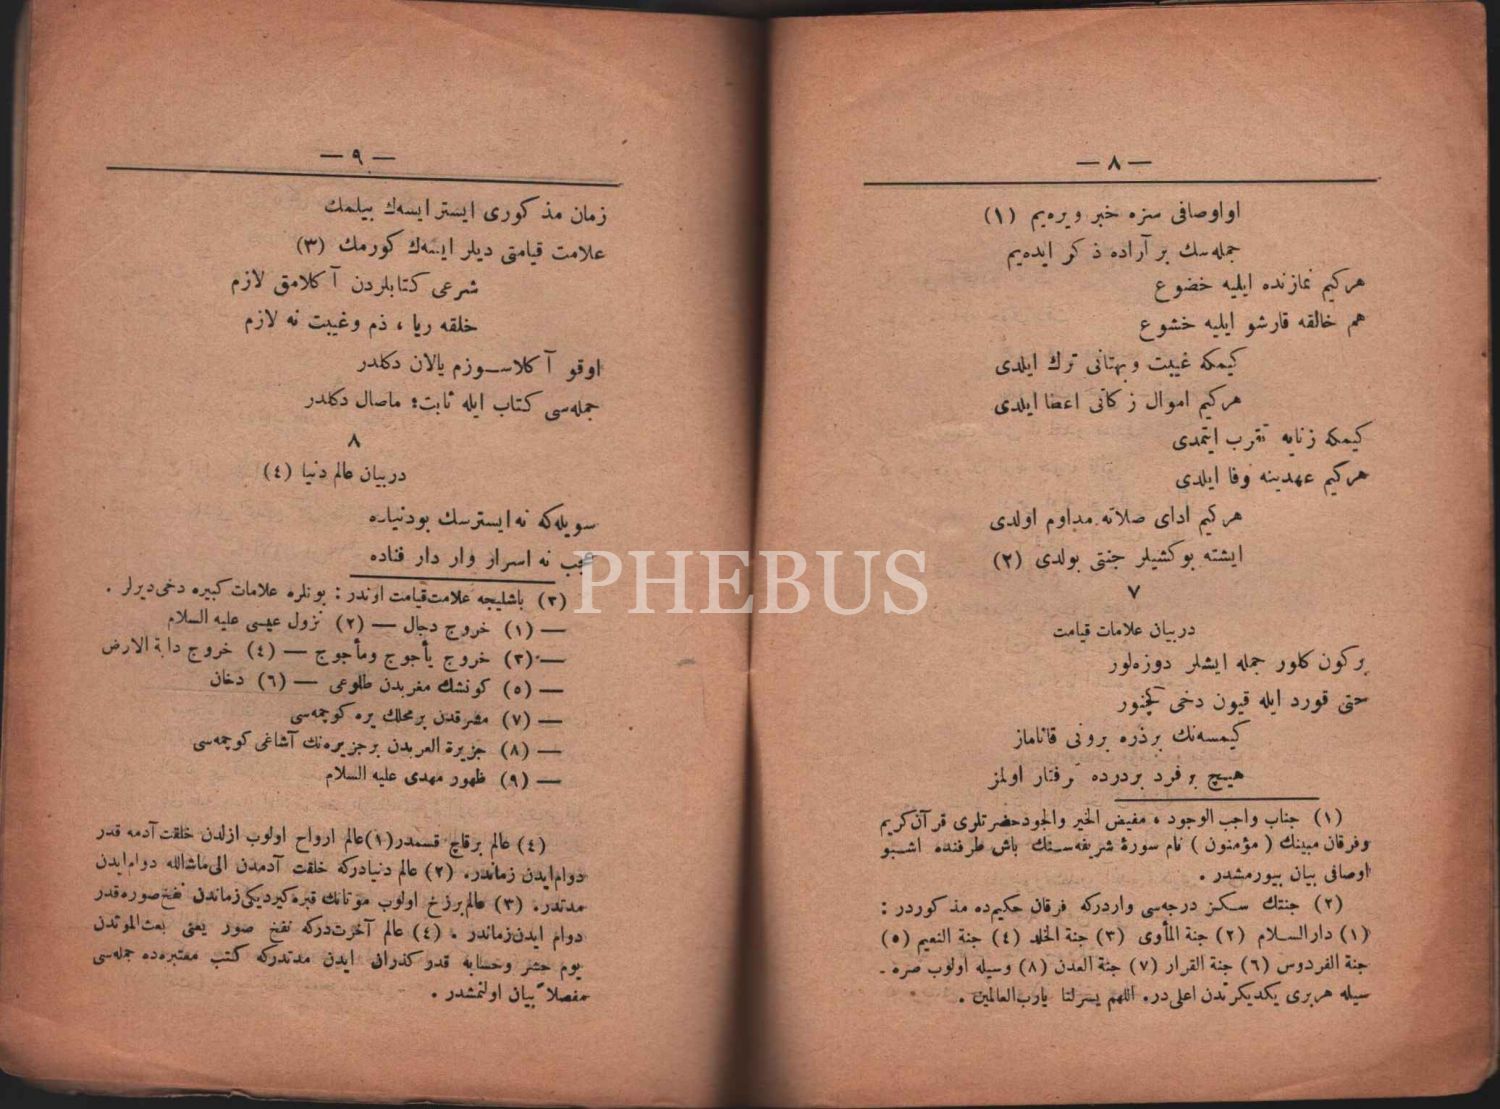 — ٨ —
او اوصافى سزه خبر ويره‌يم (١)
جمله‌سك بر آراده ذكر ايده‌يم
هركيم نمازنده ايليه خضوع
هم خالقه قارشو ايليه خشوع
كيمكه غيبت و بهتانى ترك ايلدى
هركيم اموال زكاتى اعطا ايلدى
كيمكه زنايه تقرب ايتمدى
هركيم عهدينه وفا ايلدى
هركيم اداى صلاته مداوم اولدى
ايشته بوكشيلر جنتى بولدى (٢)
٧
دربيان علامات قيامت
بركون كلور جمله ايشلر دوزه‌لور
حتى قورد ايله قيون دخى كچنور
كيمسه‌نك برذره برونى قاناماز
هيچ بر فرد بردرده گرفتار اولمز
(١) جناب واجب الوجود، مفيض الخير والجود حضرتلرى قرآن كريم
وفرقان مبينك (مؤمنون) نام سورهٔ شريفه‌سنك باش طرفنده اشبو
اوصافى بيان بيورمشدر.
(٢) جنتك سكز درجه‌سى واردركه فرقان حكيم‌ده مذكوردر:
(١) دارالسلام (٢) جنة المأوى (٣) جنة الخلد (٤) جنة النعيم (٥)
جنة الفردوس (٦) جنة القرار (٧) جنة العدن (٨) وسيله اولوب صره-
سيله هربرى يكديكرندن اعلى‌در. اللهم يسرلنا يارب‌العالمين.
— ٩ —
زمان مذكورى ايستر ايسه‌ك بيلمك
علامت قيامتى ديلر ايسه‌ك كورمك (٣)
شرعى كتابلردن آكلامق لازم
خلقه ريا، ذم وغيبت نه لازم
اوقو آكلا سوزم يالان دكلدر
جمله‌سى كتاب ايله ثابت؛ ماصال دكلدر
٨
دربيان عالم دنيا (٤)
سويله‌كه نه ايسترسك بودنياده
عجب نه اسرار وار دار فناده
(٣) باشليجه علامت قيامت اوندر: بونلره علامات كبيره دخى ديرلر.
— (١) خروج دجال — (٢) نزول عيسى عليه السلام
— (٣) خروج يأجوج ومأجوج — (٤) خروج دابة الارض
— (٥) كونشك مغربدن طلوعى — (٦) دخان
— (٧) مشرقدن برمحلك يره كوچمه‌سى
— (٨) جزيرة العربدن برجزيره‌نك آشاغى كوچمه‌سى
— (٩) ظهور مهدى عليه السلام
(٤) عالم برقاچ قسمدر (١) عالم ارواح اولوب ازلدن خلقت آدمه قدر
دوام ايدن زماندر. (٢) عالم دنيادركه خلقت آدمدن الى ماشاالله دوام ايدن
مدتدر. (٣) عالم برزخ اولوب موتانك قبره كيرديكى زماندن نفخ صوره قدر
دوام ايدن زماندر. (٤) عالم آخرت‌دركه نفخ صور يعنى بعث الموتدن
يوم حشر وحسابه قدر كذران ايدن مدتدركه كتب معتبره‌ده جمله‌سى
مفصلاً بيان اولنمشدر.
PHEBUS